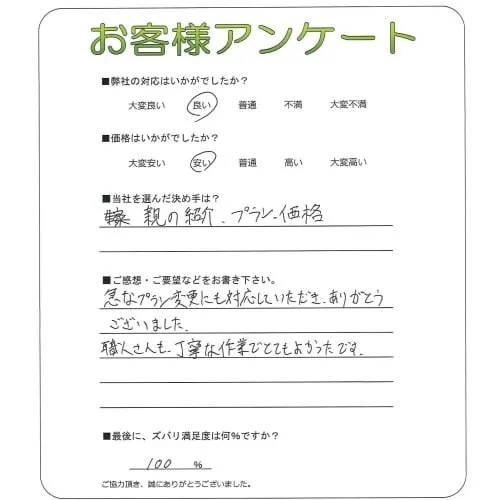 お客様アンケート
■弊社の対応はいかがでしたか?
大変良い 良い 普通 不満 大変不満
■価格はいかがでしたか?
大変安い 安い 普通 高い 大変高い
■当社を選んだ決め手は?
親の紹介、プラン、価格
■ご感想・ご要望などをお書き下さい。
急なプラン変更にも対応していただき、ありがとう
ございました。
職人さんも、丁寧な作業でとてもよかったです。
■最後に、ズバリ満足度は何%ですか?
100 %
ご協力頂き、誠にありがとうございました。